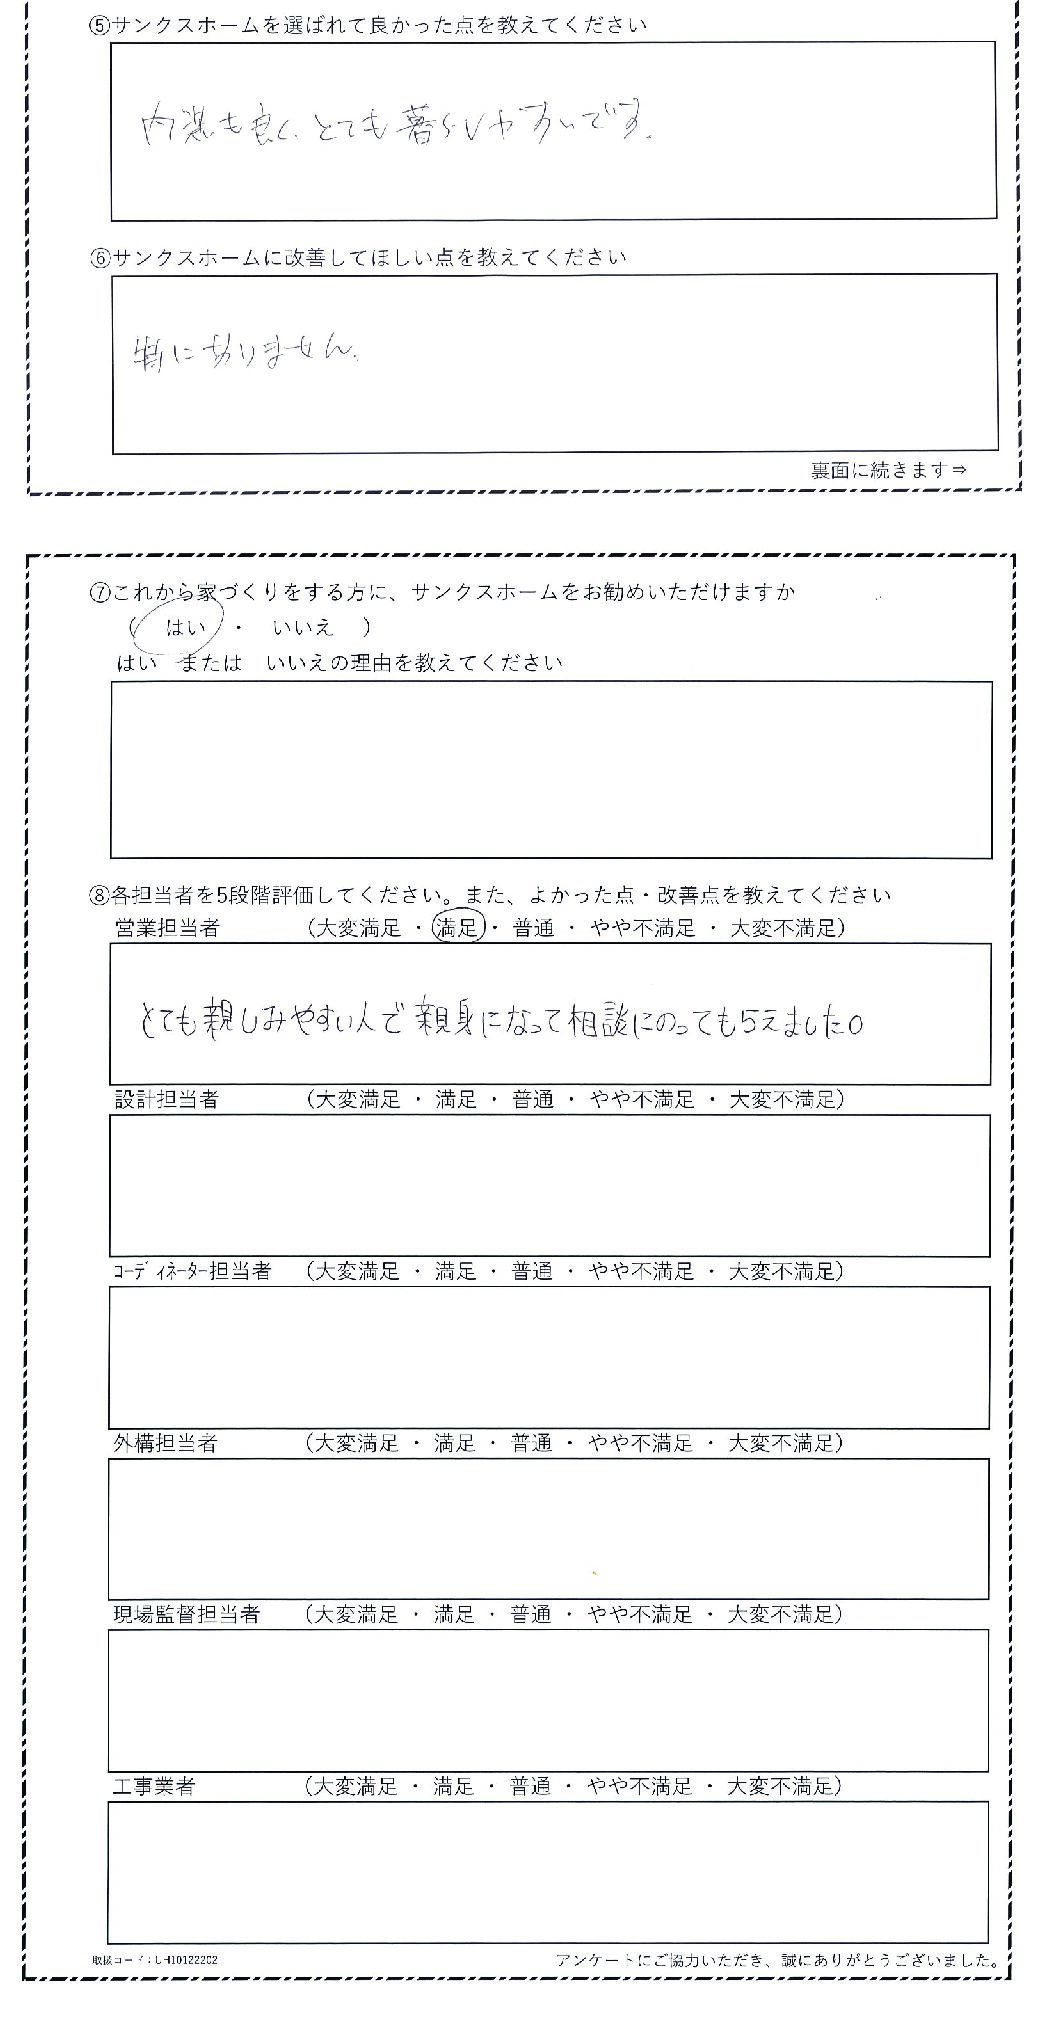 ⑤サンクスホームを選ばれて良かった点を教えてください
内装も良く、とても暮らしやすいです。
⑥サンクスホームに改善してほしい点を教えてください
特にありません。
裏面に続きます⇒
⑦これから家づくりをする方に、サンクスホームをお勧めいただけますか
( はい ・ いいえ )
はい または いいえの理由を教えてください
⑧各担当者を5段階評価してください。また、よかった点・改善点を教えてください
営業担当者 (大変満足 ・ 満足 ・ 普通 ・ やや不満足 ・ 大変不満足)
とても親しみやすい人で親身になって相談にのってもらえました。
設計担当者 (大変満足 ・ 満足 ・ 普通 ・ やや不満足 ・ 大変不満足)
ｺｰﾃﾞｨﾈｰﾀｰ担当者 (大変満足 ・ 満足 ・ 普通 ・ やや不満足 ・ 大変不満足)
外構担当者 (大変満足 ・ 満足 ・ 普通 ・ やや不満足 ・ 大変不満足)
現場監督担当者 (大変満足 ・ 満足 ・ 普通 ・ やや不満足 ・ 大変不満足)
工事業者 (大変満足 ・ 満足 ・ 普通 ・ やや不満足 ・ 大変不満足)
取扱コード：
アンケートにご協力いただき、誠にありがとうございました。